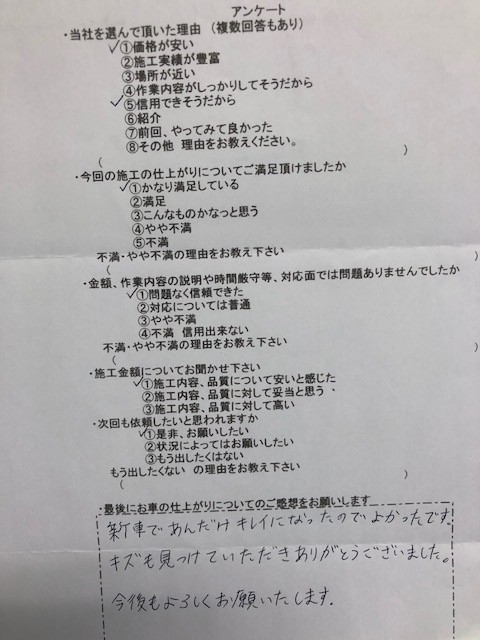 アンケート
・当社を選んで頂いた理由 (複数回答もあり)
✓①価格が安い
②施工実績が豊富
③場所が近い
④作業内容がしっかりしてそうだから
✓⑤信用できそうだから
⑥紹介
⑦前回、やってみて良かった
⑧その他 理由をお教えください。
( )
・今回の施工の仕上がりについてご満足頂けましたか
✓①かなり満足している
②満足
③こんなものかなっと思う
④やや不満
⑤不満
不満・やや不満の理由をお教え下さい
( )
・金額、作業内容の説明や時間厳守等、対応面では問題ありませんでしたか
✓①問題なく信頼できた
②対応については普通
③やや不満
④不満 信用出来ない
不満・やや不満の理由をお教え下さい
( )
・施工金額についてお聞かせ下さい
✓①施工内容、品質について安いと感じた
②施工内容、品質に対して妥当と思う
③施工内容、品質に対して高い
・次回も依頼したいと思われますか
✓①是非、お願いしたい
②状況によってはお願いしたい
③もう出したくはない
もう出したくない の理由をお教え下さい
( )
・最後にお車の仕上がりについてのご感想をお願いします
新車であんだけキレイになったのでよかったです。
キズも見つけていただきありがとうございました。
今後もよろしくお願いいたします。